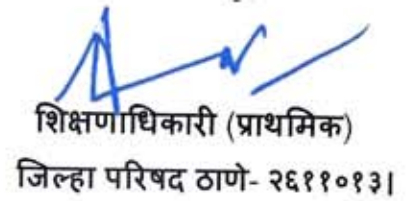 शिक्षणाधिकारी (प्राथमिक)
जिल्हा परिषद ठाणे- २६११०१३|